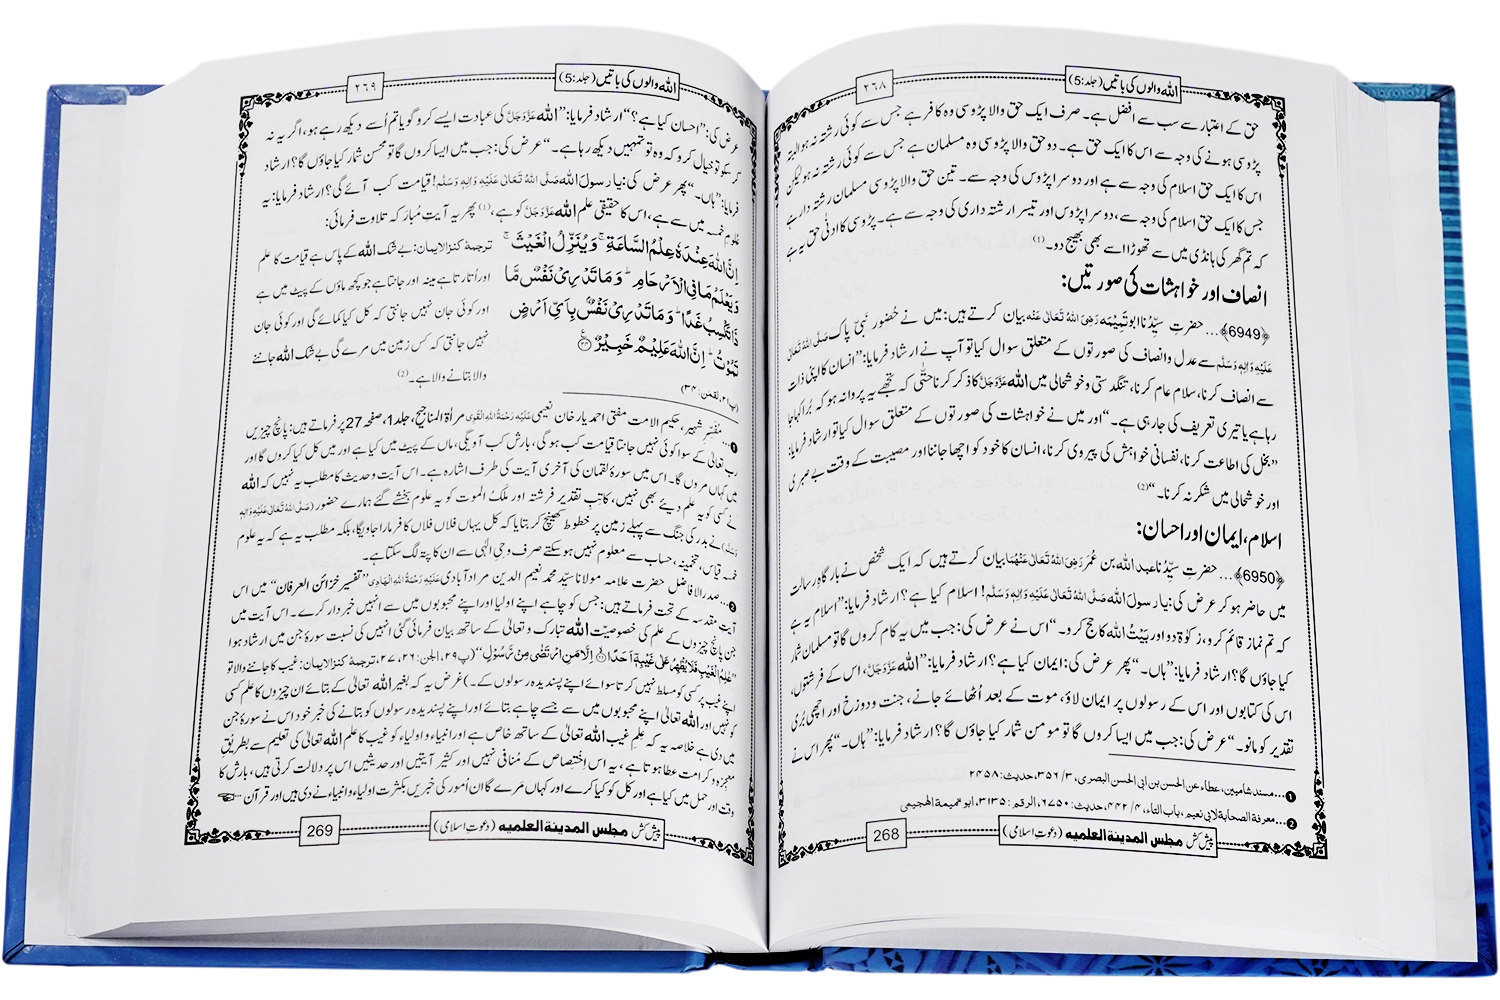 اللہ والوں کی باتیں (جلد:5)
٢٦٨
حق کے اعتبار سے سب سے افضل ہے۔ صرف ایک حق والا پڑوسی وہ کافر ہے جس سے کوئی رشتہ نہ ہو البتہ
پڑوسی ہونے کی وجہ سے اس کا ایک حق ہے۔ دو حق والا پڑوسی وہ مسلمان ہے جس سے کوئی رشتہ نہ ہو لیکن
اس کا ایک حق اسلام کی وجہ سے ہے اور دوسرا پڑوس کی وجہ سے۔ تین حق والا پڑوسی مسلمان رشتہ دار ہے
جس کا ایک حق اسلام کی وجہ سے، دوسرا پڑوس اور تیسرا رشتہ داری کی وجہ سے ہے۔ پڑوسی کا ادنیٰ حق یہ ہے
کہ تم گھر کی ہانڈی میں سے تھوڑا اسے بھی بھیج دو۔(1)
انصاف اور خواہشات کی صورتیں:
﴿6949﴾... حضرتِ سیِّدُنا ابوتَمِیْمَہ رَضِیَ اللہُ تَعَالٰی عَنْہ بیان کرتے ہیں: میں نے حُضور نبیِّ پاک صَلَّی اللہُ تَعَالٰی
عَلَیْہِ وَاٰلِہٖ وَسَلَّم سے عدل و انصاف کی صورتوں کے متعلق سوال کیا تو آپ نے ارشاد فرمایا: ”انسان کا اپنی ذات
سے انصاف کرنا، سلام عام کرنا، تنگدستی و خوشحالی میں اللہ عَزَّوَجَلَّ کا ذکر کرنا حتّٰی کہ تجھے یہ پروا نہ ہو کہ بُرا کہا جا
رہا ہے یا تیری تعریف کی جارہی ہے۔“ اور میں نے خواہشات کی صورتوں کے متعلق سوال کیا تو ارشاد فرمایا:
”بخل کی اطاعت کرنا، نفسانی خواہش کی پیروی کرنا، انسان کا خود کو اچھا جاننا اور مصیبت کے وقت بے صبری
اور خوشحالی میں شکر نہ کرنا۔“(2)
اسلام، ایمان اور احسان:
﴿6950﴾... حضرتِ سیِّدُنا عبد اللہ بن عُمَر رَضِیَ اللہُ تَعَالٰی عَنْہُمَا بیان کرتے ہیں کہ ایک شخص نے بارگاہِ رسالت
میں حاضر ہو کر عرض کی: یا رسولَ اللہ صَلَّی اللہُ تَعَالٰی عَلَیْہِ وَاٰلِہٖ وَسَلَّم! اسلام کیا ہے؟ ارشاد فرمایا: ”اسلام یہ ہے
کہ تم نماز قائم کرو، زکوٰۃ دو اور بَیْتُ اللہ کا حج کرو۔“ اس نے عرض کی: جب میں یہ کام کروں گا تو مسلمان شمار
کیا جاؤں گا؟ ارشاد فرمایا: ”ہاں۔“ پھر عرض کی: ایمان کیا ہے؟ ارشاد فرمایا: ”اللہ عَزَّوَجَلَّ، اس کے فرشتوں،
اس کی کتابوں اور اس کے رسولوں پر ایمان لاؤ، موت کے بعد اُٹھائے جانے، جنت و دوزخ اور اچھی بُری
تقدیر کو مانو۔“ عرض کی: جب میں ایسا کروں گا تو مومن شمار کیا جاؤں گا؟ ارشاد فرمایا: ”ہاں۔“ پھر اس نے
❶...مسند شامیین، عطاء عن الحسن بن ابی الحسن البصری، ٣/ ٣٥٦، حدیث: ٢٤٥٨
❷...معرفۃ الصحابۃ لابی نعیم، باب التاء، ٤/ ٤٤٢، حدیث: ٦٧٥٠، الرقم: ٣١٣٥، ابو تمیمۃ الھجیمی
پیش کش مجلس المدینۃ العلمیہ (دعوت اسلامی)
268
اللہ والوں کی باتیں (جلد:5)
٢٦٩
عرض کی: ”احسان کیا ہے؟“ ارشاد فرمایا: ”اللہ عَزَّوَجَلَّ کی عبادت ایسے کرو گویا تم اُسے دیکھ رہے ہو، اگر یہ نہ
کر سکو تو خیال کرو کہ وہ تو تمہیں دیکھ رہا ہے۔“ عرض کی: جب میں ایسا کروں گا تو محسن شمار کیا جاؤں گا؟ ارشاد
فرمایا: ”ہاں۔“ پھر عرض کی: یا رسولَ اللہ صَلَّی اللہُ تَعَالٰی عَلَیْہِ وَاٰلِہٖ وَسَلَّم! قیامت کب آئے گی؟ ارشاد فرمایا: یہ
عُلومِ خمسہ میں سے ہے، اس کا حقیقی علم اللہ عَزَّوَجَلَّ کو ہے،(1) پھر یہ آیتِ مُبارَکہ تلاوت فرمائی:
اِنَّ اللّٰهَ عِنْدَهٗ عِلْمُ السَّاعَةِۚ وَ یُنَزِّلُ الْغَیْثَۚ
وَ یَعْلَمُ مَا فِی الْاَرْحَامِؕ وَ مَا تَدْرِیْ نَفْسٌ مَّا
ذَا تَكْسِبُ غَدًاؕ وَ مَا تَدْرِیْ نَفْسٌۢ بِاَیِّ اَرْضٍ
تَمُوْتُؕ اِنَّ اللّٰهَ عَلِیْمٌ خَبِیْرٌ۠(۳۴)
(پ۲۱، لقمٰن: ۳۴)
ترجمۂ کنز الایمان: بے شک اللہ کے پاس ہے قیامت کا علم
اور اُتارتا ہے مینہ اور جانتا ہے جو کچھ ماؤں کے پیٹ میں ہے
اور کوئی جان نہیں جانتی کہ کل کیا کمائے گی اور کوئی جان
نہیں جانتی کہ کس زمین میں مرے گی بے شک اللہ جاننے
والا بتانے والا ہے۔(2)
❶...مُفسّرِ شہیر، حکیم الامت مفتی احمد یار خان نعیمی عَلَیْہِ رَحْمَۃُ اللہِ الْقَوِی مرأۃ المناجیح، جلد1، صفحہ27 پر فرماتے ہیں: پانچ چیزیں
رب تعالیٰ کے سوا کوئی نہیں جانتا قیامت کب ہوگی، بارش کب آوے گی، ماں کے پیٹ میں کیا ہے اور میں کل کیا کروں گا اور
میں کہاں مروں گا۔ اس میں سورۂ لقمان کی آخری آیت کی طرف اشارہ ہے۔ اس آیت و حدیث کا مطلب یہ نہیں کہ اللہ
نے کسی کو یہ علم دیئے بھی نہیں، کاتبِ تقدیر فرشتہ اور ملکُ الموت کو یہ علوم بخشے گئے ہمارے حضور (صَلَّی اللہُ تَعَالٰی عَلَیْہِ وَاٰلِہٖ
وَسَلَّم) نے بدر کی جنگ سے پہلے زمین پر خطوط کھینچ کر بتایا کہ کل یہاں فلاں فلاں کافر مارا جاویگا، بلکہ مطلب یہ ہے کہ یہ علوم
خمسہ قیاس، تخمینہ، حساب سے معلوم نہیں ہوسکتے صرف وحیِ الٰہی سے ان کا پتہ لگ سکتا ہے۔
❷...صدرالافاضل حضرت علامہ مولانا سیِّد محمد نعیم الدین مراد آبادی عَلَیْہِ رَحْمَۃُ اللہِ الْہَادِی ”تفسیر خزائن العرفان“ میں اس
آیت مقدسہ کے تحت فرماتے ہیں: جس کو چاہے اپنے اولیا اور اپنے محبوبوں میں سے انہیں خبردار کرے۔ اس آیت میں
جن پانچ چیزوں کے علم کی خصوصیّت اللہ تبارک و تعالیٰ کے ساتھ بیان فرمائی گئی انہیں کی نسبت سورۂ جن میں ارشاد ہوا
”عٰلِمُ الْغَیْبِ فَلَا یُظْهِرُ عَلٰى غَیْبِهٖۤ اَحَدًاۙ اِلَّا مَنِ ارْتَضٰى مِنْ رَّسُوْلٍ“ (پ۲۹، الجن: ۲۶، ۲۷، ترجمۂ کنز الایمان: غیب کا جاننے والا تو
اپنے غیب پر کسی کو مسلط نہیں کرتا سوائے اپنے پسندیدہ رسولوں کے۔) غرض یہ کہ بغیر اللہ تعالیٰ کے بتائے ان چیزوں کا علم کسی
کو نہیں اور اللہ تعالیٰ اپنے محبوبوں میں سے جسے چاہے بتائے اور اپنے پسندیدہ رسولوں کو بتانے کی خبر خود اس نے سورۂ جن
میں دی ہے خلاصہ یہ کہ علم غیب اللہ تعالیٰ کے ساتھ خاص ہے اور انبیاء و اولیاء کو غیب کا علم اللہ تعالیٰ کی تعلیم سے بطریق
معجزہ و کرامت عطا ہوتا ہے، یہ اس اِختِصاص کے مُنافی نہیں اور کثیر آیتیں اور حدیثیں اس پر دلالت کرتی ہیں، بارش کا
وقت اور حمل میں کیا ہے اور کل کو کیا کرے اور کہاں مرے گا ان اُمور کی خبریں بکثرت اولیاء و انبیاء نے دی ہیں اور قرآن
پیش کش مجلس المدینۃ العلمیہ (دعوت اسلامی)
269